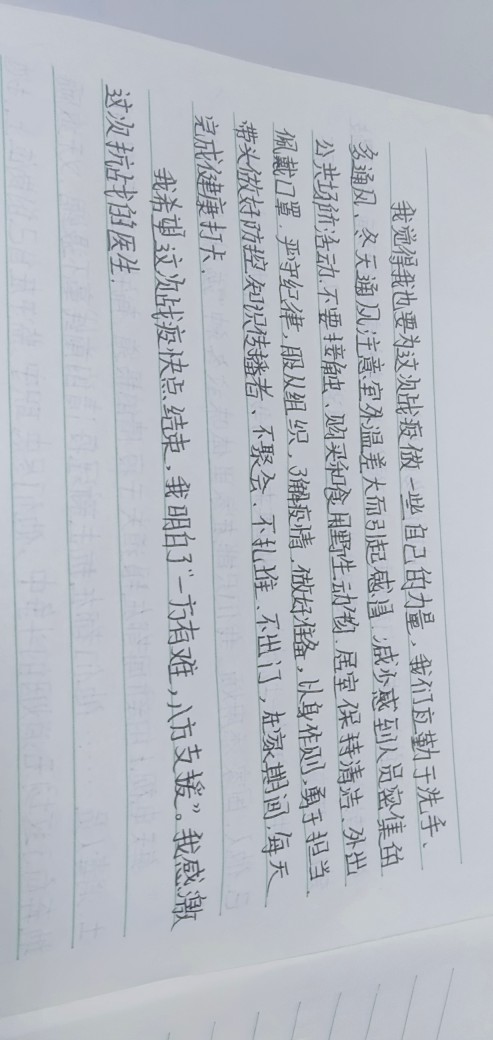 我觉得我也要为这次战疫做一些自己的力量，我们应勤于洗手、
多通风、冬天通风注意室外温差大而引起感冒，减少感到人员密集的
公共场所活动，不要接触、购买和食用野生动物，居室保持清洁、外出
佩戴口罩，严守纪律，服从组织，了解疫情，做好准备，以身作则，勇于担当、
带头做好防控知识传播者、不聚会、不扎堆、不出门，在家期间，每天
完成健康打卡．
我希望这次战疫快点结束，我明白了“一方有难，八方支援”。我感激
这次抗战的医生